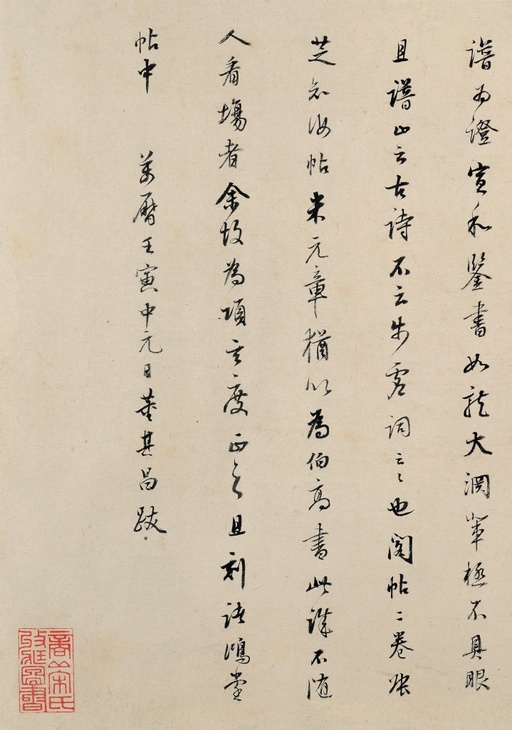 譜為證宣和鑒書如龍大淵輩極不具眼
且譜止云古詩不云步虛詞云云也閣帖二卷張
芝知汝帖米元章猶以為伯高書此誰不隨
人看場者余故為項玄度正之且刻諸鴻堂
帖中　萬曆壬寅中元日董其昌跋